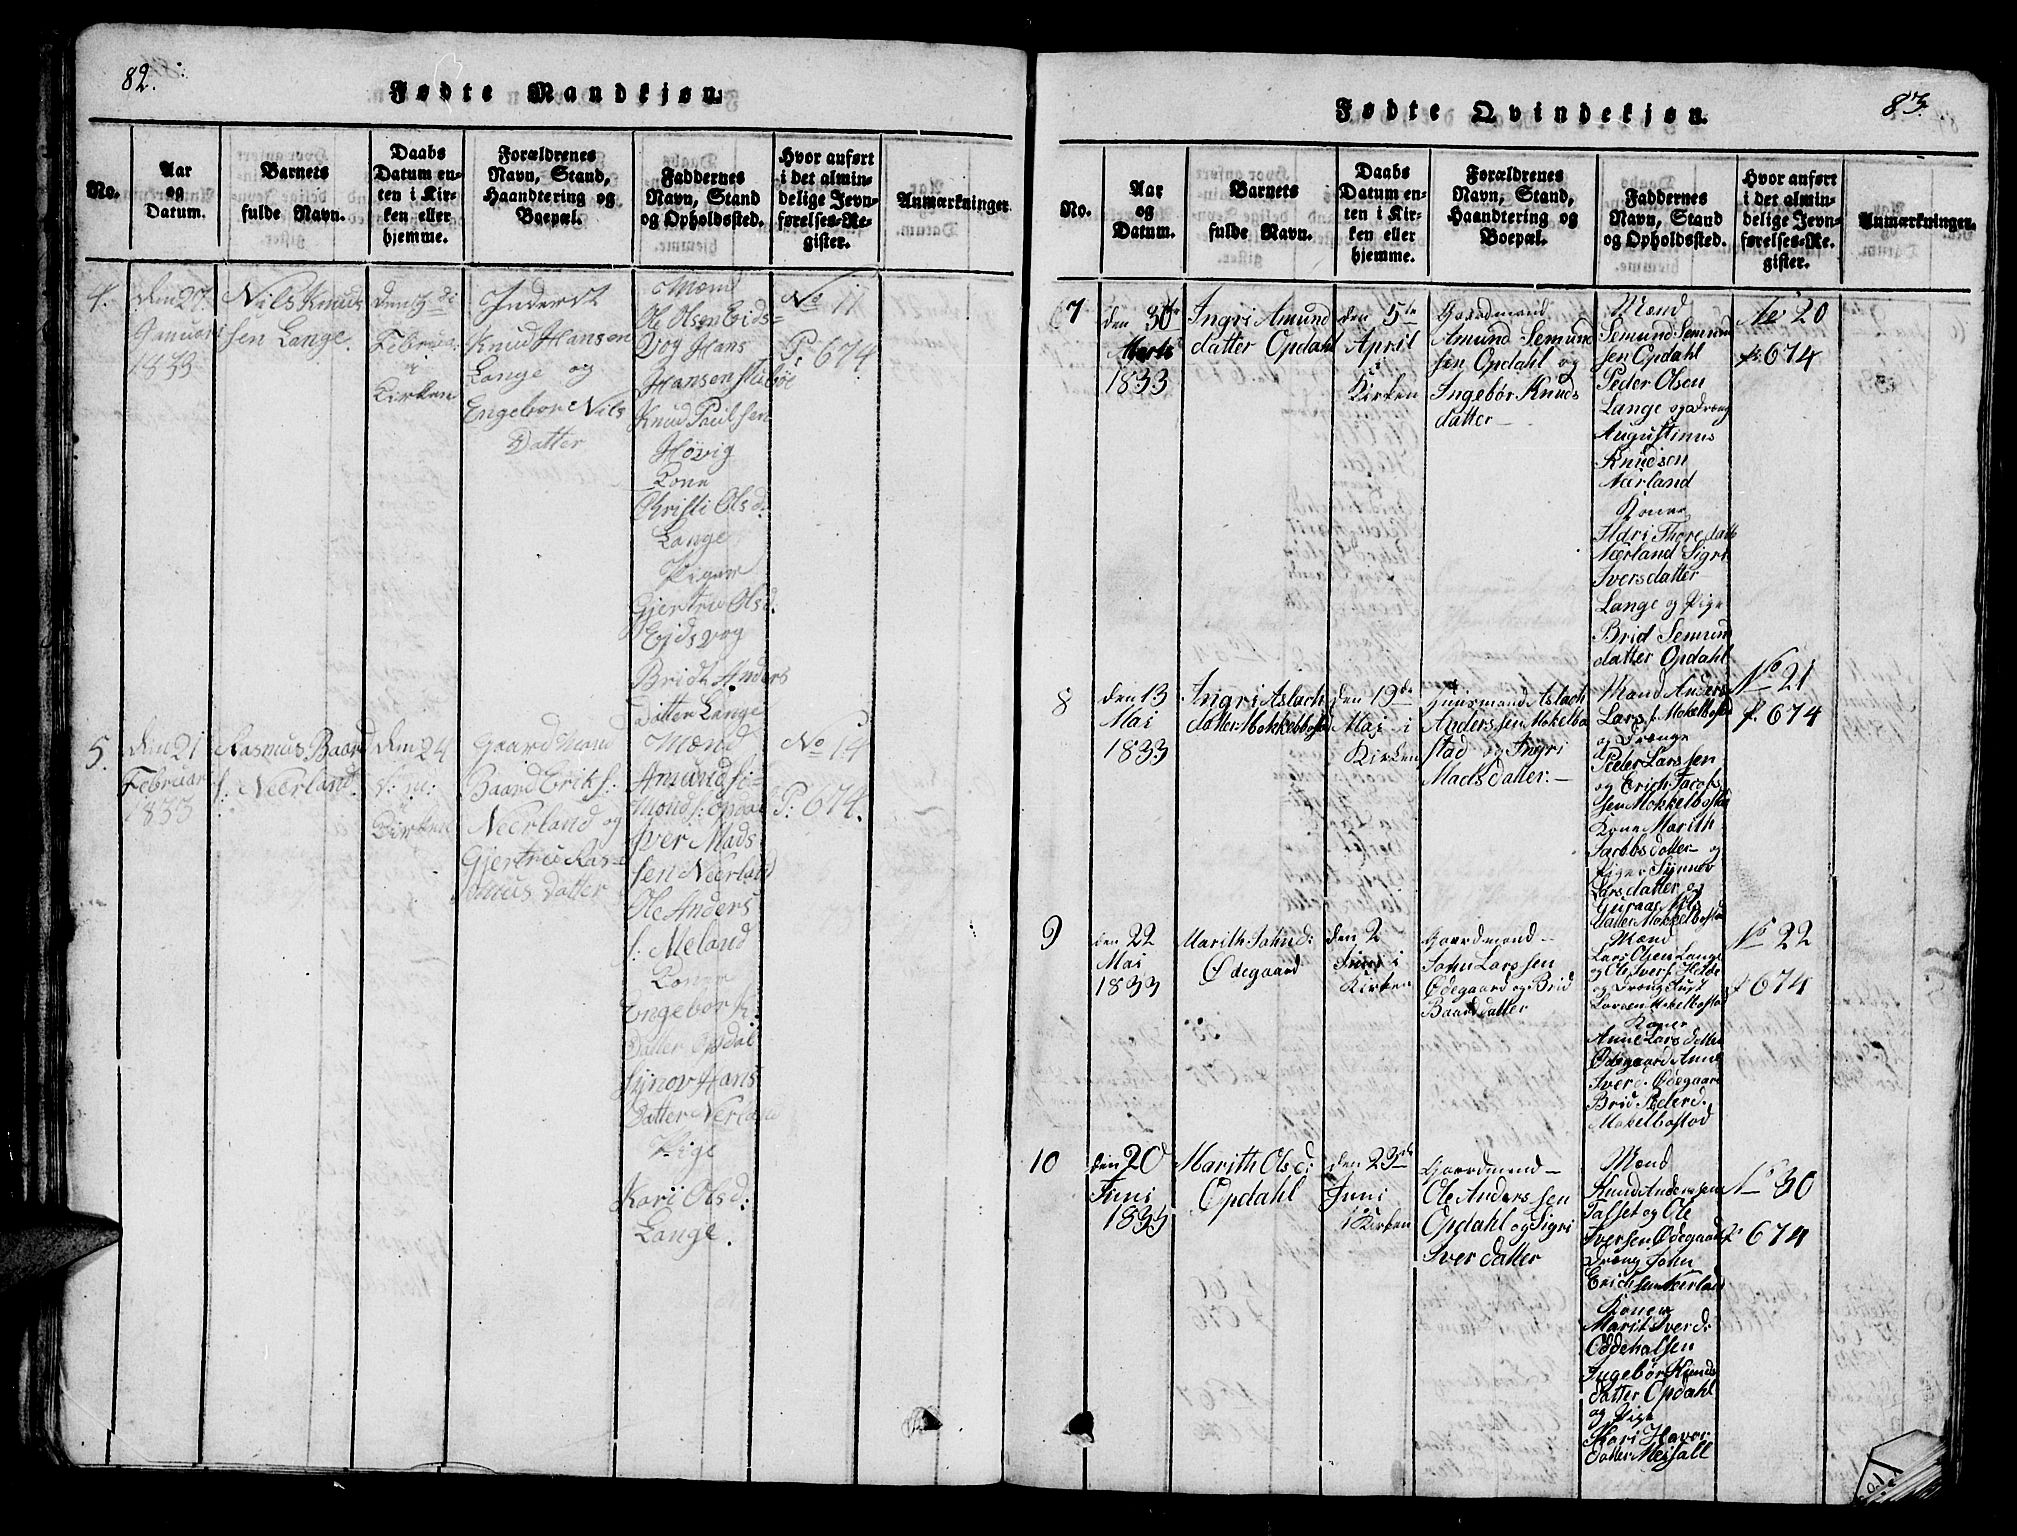 82.
Fødte Mandkjøn.
No.
Aar
og
Datum.
Barnets
fulde Navn.
Daabs
Datum en-
ten i Kir-
ken eller
hjemme.
Forældrenes
Navn, Stand,
Haandtering og
Boepæl.
Faddernes
Navn, Stand
og Opholdssted.
Hvor anført
i det almin-
delige Jevn-
førelses-Re-
gister.
Anmærkninger
4.
den 27.
Januari
1833
Nils Knuds
sen Lange.
Februar
i
Kirken
Inderst
Knud Hansen
Lange og
Engebor Nils
Datter
Mænd
Ole Olsen Eids-
vog Hans
Hansen
Knud Paulsen
Høvig
Kone
Christi Olsd.
Lange
Piger
Gjertru Olsd.
Eidsvog
Bridt Anders
Datter Lange
No 11
P: 674
5.
den 21
Februar
1833
Rasmus Baard
s: Neerland.
den 24
s: m:
i
Kirken
Gaard Mand
Baard Eriks:
Neerland og
Gjertru Ras-
mus Datter
Mænd
Amund Si-
mond s: Opdal
Iver Mads
sen Neerland
Ole Anders
s: Meland
Koner
Engebor K:
Datter Opdal
Synov Hans
Datter Nerland
Pige
Kari Olsd:
Lange.
No 14
P: 674.
83.
Fødte Qvindekjøn.
No.
Aar
og
Datum.
Barnets
fulde Navn.
Daabs
Datum en-
ten i Kir-
ken eller
hjemme.
Forældrenes
Navn, Stand,
Haandtering og
Boepæl.
Faddernes
Navn, Stand
og Opholdssted.
Hvor anført
i det almin-
delige Jevn-
førelses-Re-
gister.
Anmærkninger.
7
den 30te
Marts
1833
Ingri Amund
datter Opdahl
den 5te
April
i
Kirken
Gaardmand
Amund Semund
sen Opdahl og
Ingebør Knuds
datter
Mænd
Semund Semund
sen Opdahl
Peder Olsen
Lange og Dreng
Augustinus
Knudsen
Nærland
Koner
Ildri Thore datt
Nærland Sigri
Iversdatter
Lange og Pige
Brid Semund
datter Opdahl
No 20
p. 674
8
den 13
Mai
1833
Ingri Aslach
datter Mokkelbostad
den 19de
Mai i
Kirken
Anders sen Mokelbo
stad og Ingri
Mads datter
Mand Anders
Lars s. Mokelbostad
og Drenge
Peder Larssen
og Erich Jacob
sen Mokkelbostad
Kone Marith
Jacobsdatter og
Piger Synnev
Larsdatter og
Guraas Nils
datter Mokkelbostad
No 21
p. 674
9
den 22
Mai
1833
Marith Johnd:
Ødegaard
den 2
Juni i
Kirken
Gaardmand
John Larssen
Ødegaard og Brid
Baardsdatter
Mænd
Lars Olsen Lange
og Ole Ivers. Helde
og Dreng
Larssen Mokelbostad
Koner
Anne Lars datter
Ødegaard Anne
Iverd. Ødegaard
Brid Pederd.
Mokelbostad
No 22
p 674
10
den 20
Juni
1833
Marith Olsd:
Opdahl
den 23de
Juni
i Kirken
Gaardmand
Ole Anderssen
Opdahl og Sigri
Iver datter
Mænd
Knud Anderssen
Tasset og Ole
Iversen Ødegaard
Dreng John
Erichsen Nerland
Koner
Marit Iverd:
Oddehalsen
Ingebør Knuds
datter Opdahl
og Pige
Kari Havor
datter Meisall
No 30
p 674